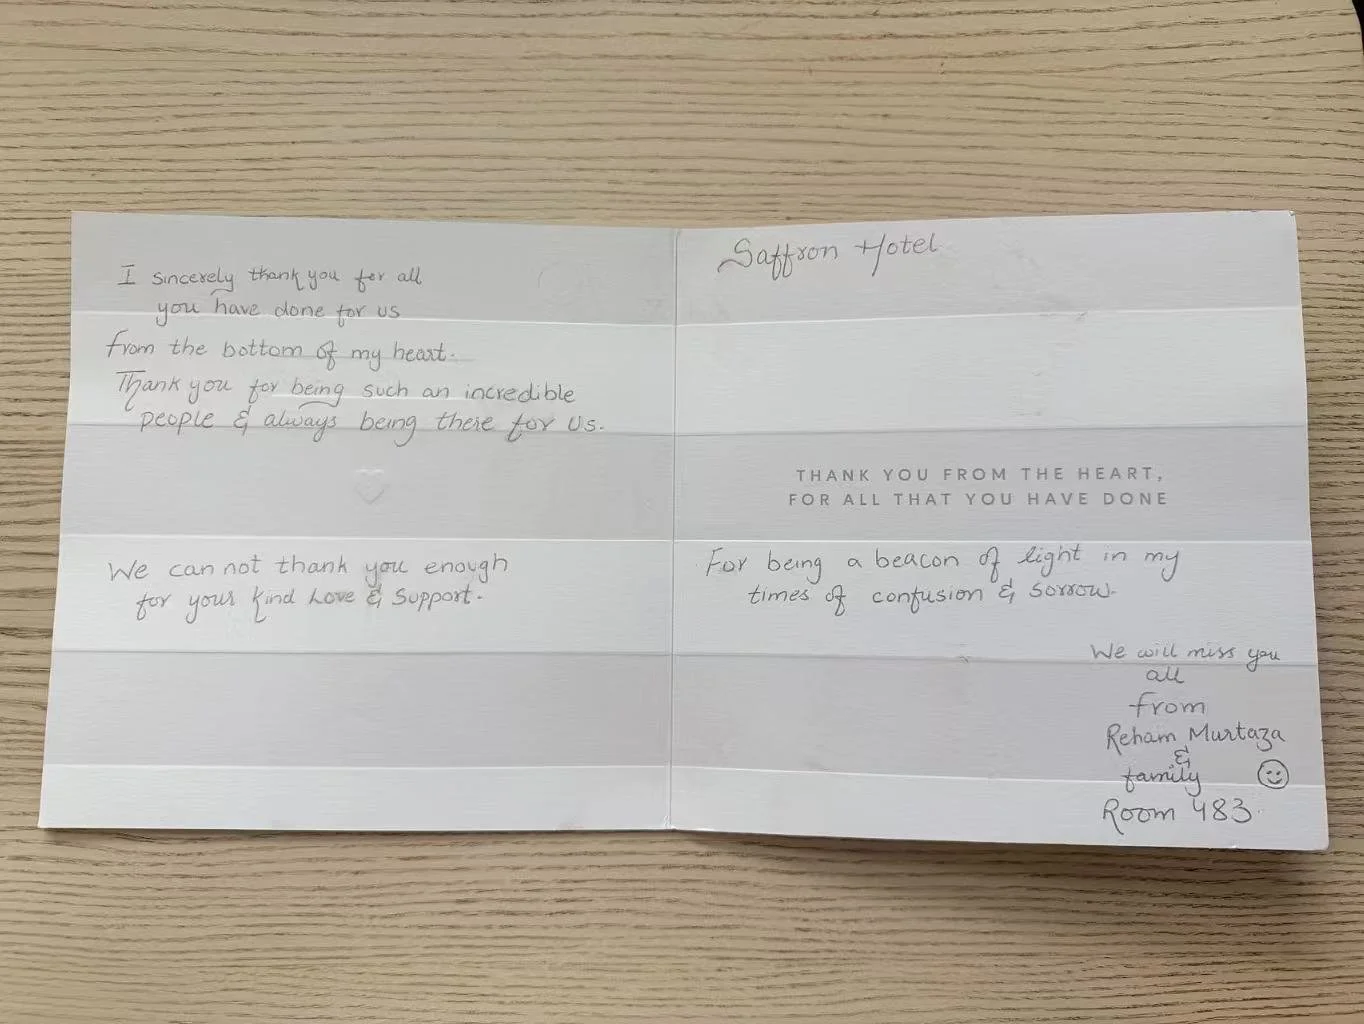 I sincerely thank you for all
you have done for us
from the bottom of my heart.
Thank you for being such an incredible
people & always being there for us.
We can not thank you enough
for your kind Love & Support.
Saffron Hotel
THANK YOU FROM THE HEART,
FOR ALL THAT YOU HAVE DONE
For being a beacon of light in my
times of confusion & sorrow.
We will miss you
all
from
Reham Murtaza
&
family
Room 483.